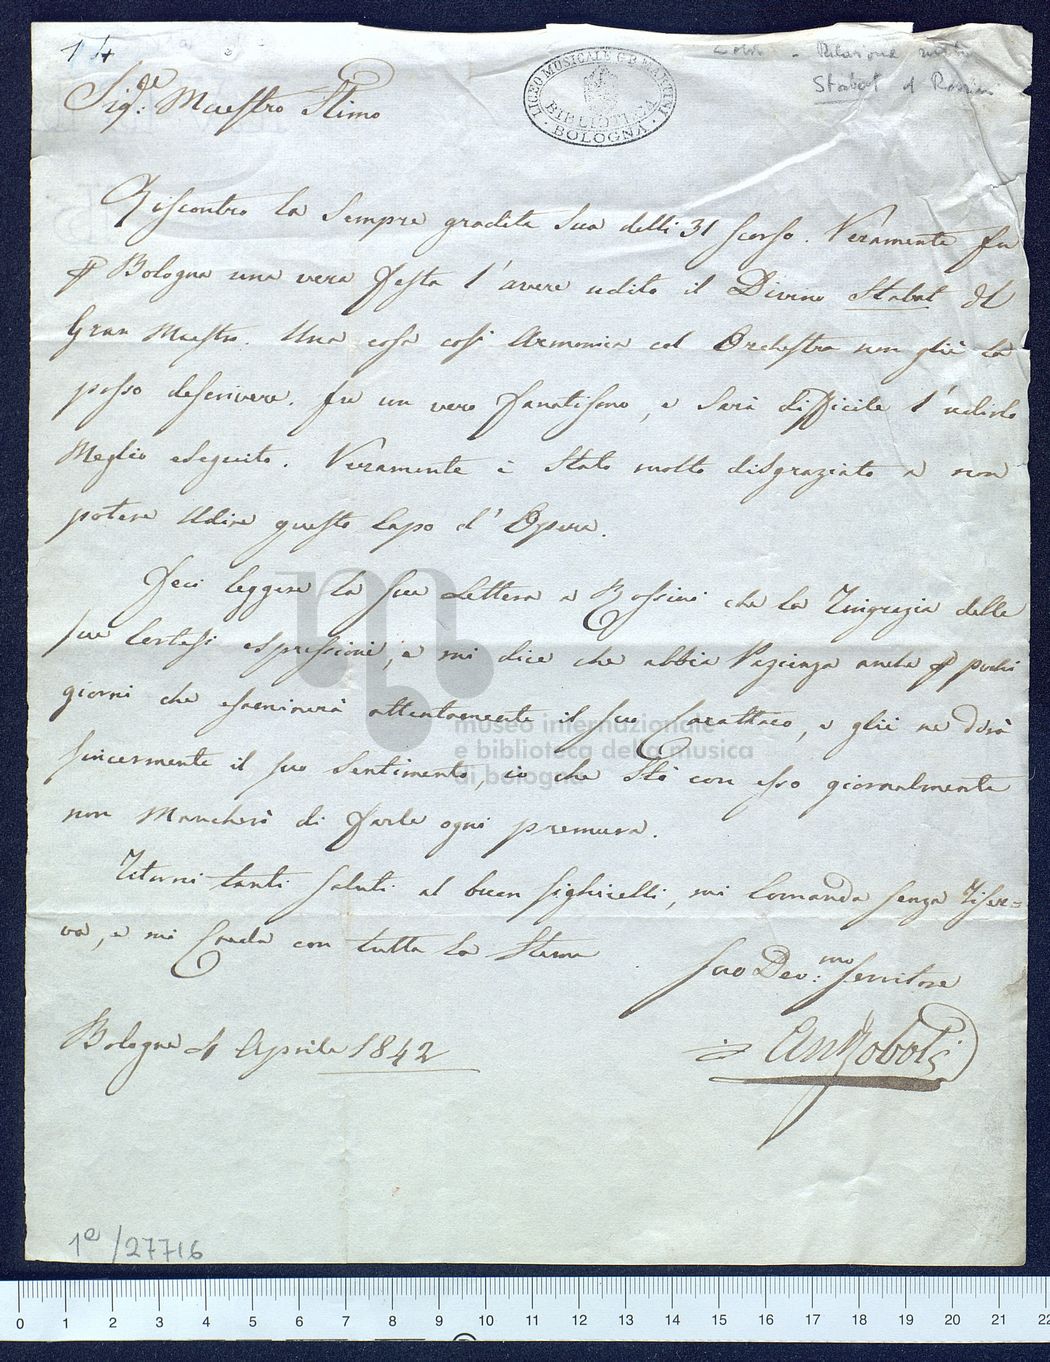 14
Sig.re Maestro Stimo
LICEO MUSICALE G.B. MARTINI
BIBLIOTECA
BOLOGNA
Relazione
Stabat di Rossini
Riscontro la sempre gradita sua delli 31 scorso. Veramente fu
p Bologna una vera festa l'avere udito il Divino Stabat del
Gran Maestro. Una cosa così Armonica ed Orchestra non gliè la
posso descrivere. fu un vero fanatismo, e sarà difficile l'udirlo
Meglio eseguito. Veramente è stato molto disgraziato a non
potere Udire questo Capo d'Opera.
Feci leggere la sua Lettera a Rossini che la Ringrazia delle
sue Cortesi espressioni, e mi dice che abbia Pazienza anche p pochi
giorni che esaminerà attentamente il suo, e gliè ne dirà
sincermente il suo sentimento, io che Stò con esso giornalmente
non Mancherò di farle ogni premura.
Ritorni tanti saluti al buon Sighicelli, mi Comanda senza Riser=
va, e mi Creda con tutta la Stima
Suo Dev:mo Servitore
Bologna 4 Aprile 1842
An Zoboli
museo internazionale
e biblioteca della musica
di bologna
1a/27716
0 1 2 3 4 5 6 7 8 9 10 11 12 13 14 15 16 17 18 19 20 21 22